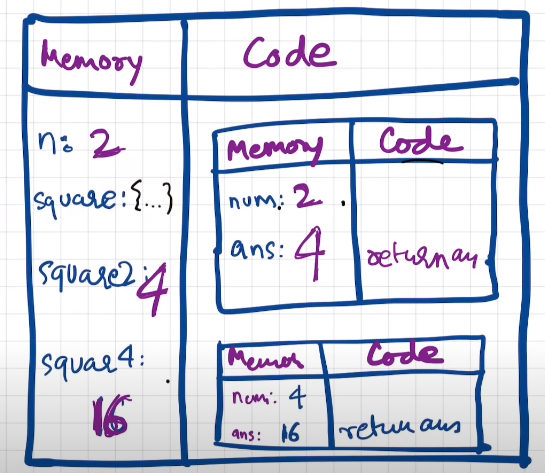 Memory
Code
n: 2
square:{...}
square2: 4
squar4:
16
Memory
Code
num: 2
ans: 4
return an
Memor
Code
num: 4
ans: 16
return ans